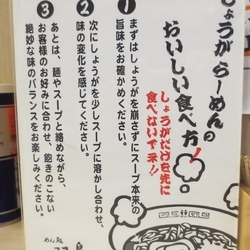 しょうが らーめんの
おいしい食べ方!
しょうがだけを先に
食べないで下さい!!
①
まずはしょうがを崩さずにスープ本来の
旨味をお確かめください。
②
次にしょうがを少しスープに溶かし合わせ、
味の変化を感じてください。
③
あとは、麺やスープと絡めながら、
お客様のお好みに合わせ、飽きのこない
絶妙な味のバランスをお楽しみください。
めん処